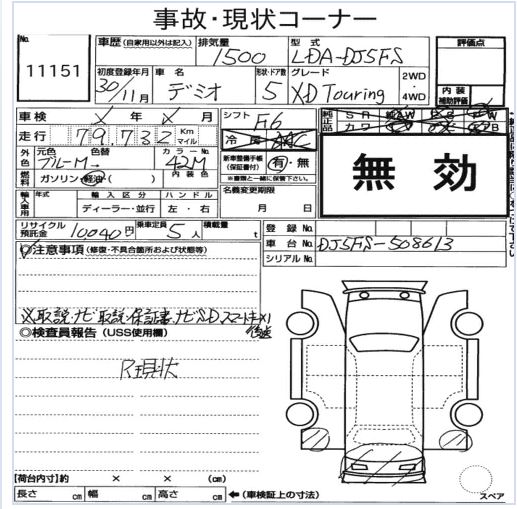 事故・現状コーナー
No. 11151
車歴 (自家用以外は記入) 排気量 1500 型式 LDA-DJ5FS 評価点
初度登録年月 30/11月 車名 デミオ 形状・ドア数 5 グレード XD Touring 2WD・4WD 内装補助評価
車検 X 年 X 月 シフト F6 純正品
走行 79,732 Km マイル 冷房 AAC
外色 元色 ブルーM 色替 → カラーNo. 42M 新車整備手帳(保証書付) 有・無
※書類と一緒に保管下さい。
燃料 ガソリン・軽油・( ) 内装色 名義変更期限
無効
輸入車用 年式 輸入区分 ディーラー・並行 ハンドル 左・右 月 日
リサイクル預託金 10040円 乗車定員 5人 積載量 t 登録No.
車台No. DJ5FS-508613
シリアルNo.
◎注意事項 (修復・不具合箇所および状態等)
※取説・ナビ取説・保証書、ナビSD、スマートキーX1
後送
◎検査員報告 (USS使用欄)
R現状
【荷台内寸】約 × × (cm)
長さ cm 幅 cm 高さ cm ←(車検証上の寸法)
スペア